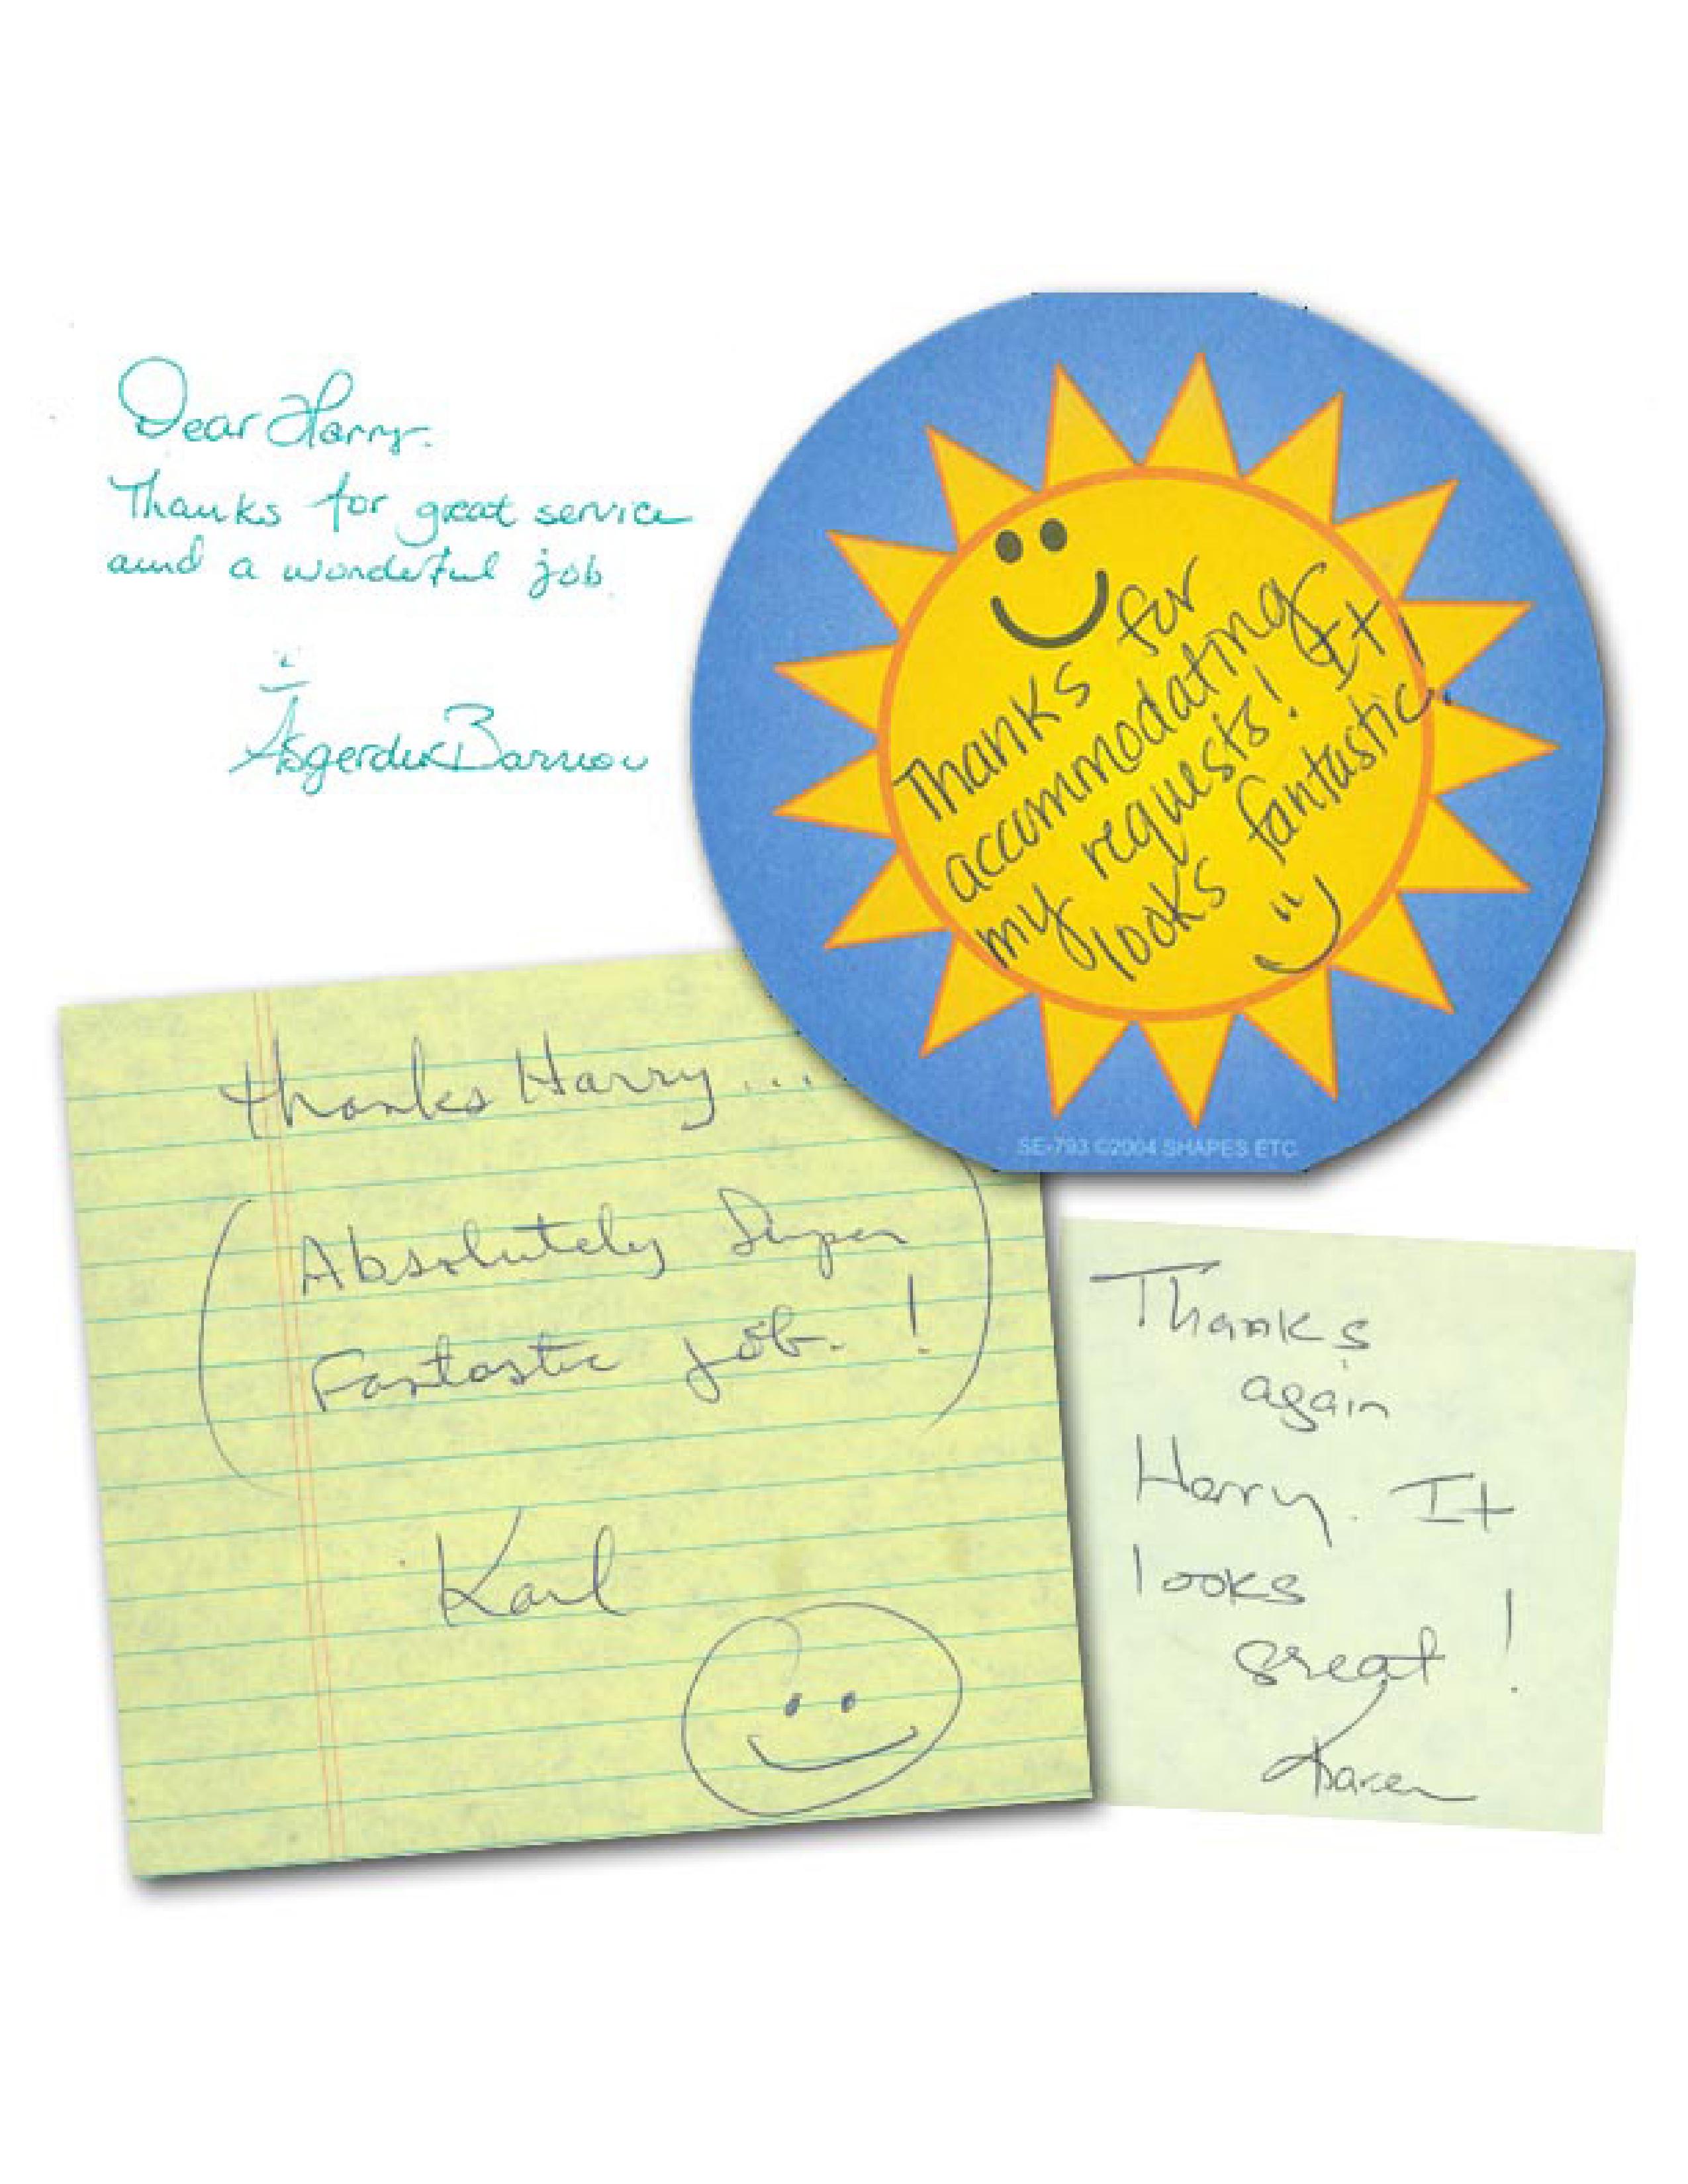 Dear Harry.
Thanks for great service
and a wonderful job.
Thanks for
accommodating
my requests! It
looks fantastic!
SE-793 ©2004 SHAPES ETC
Thanks Harry...
(Absolutely Super
Fantastic job.!)
Karl
Thanks
again
Harry. It
looks
great!
Karen